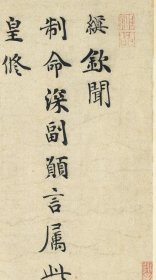 撰欽聞
制命深副顒言属此
皇修